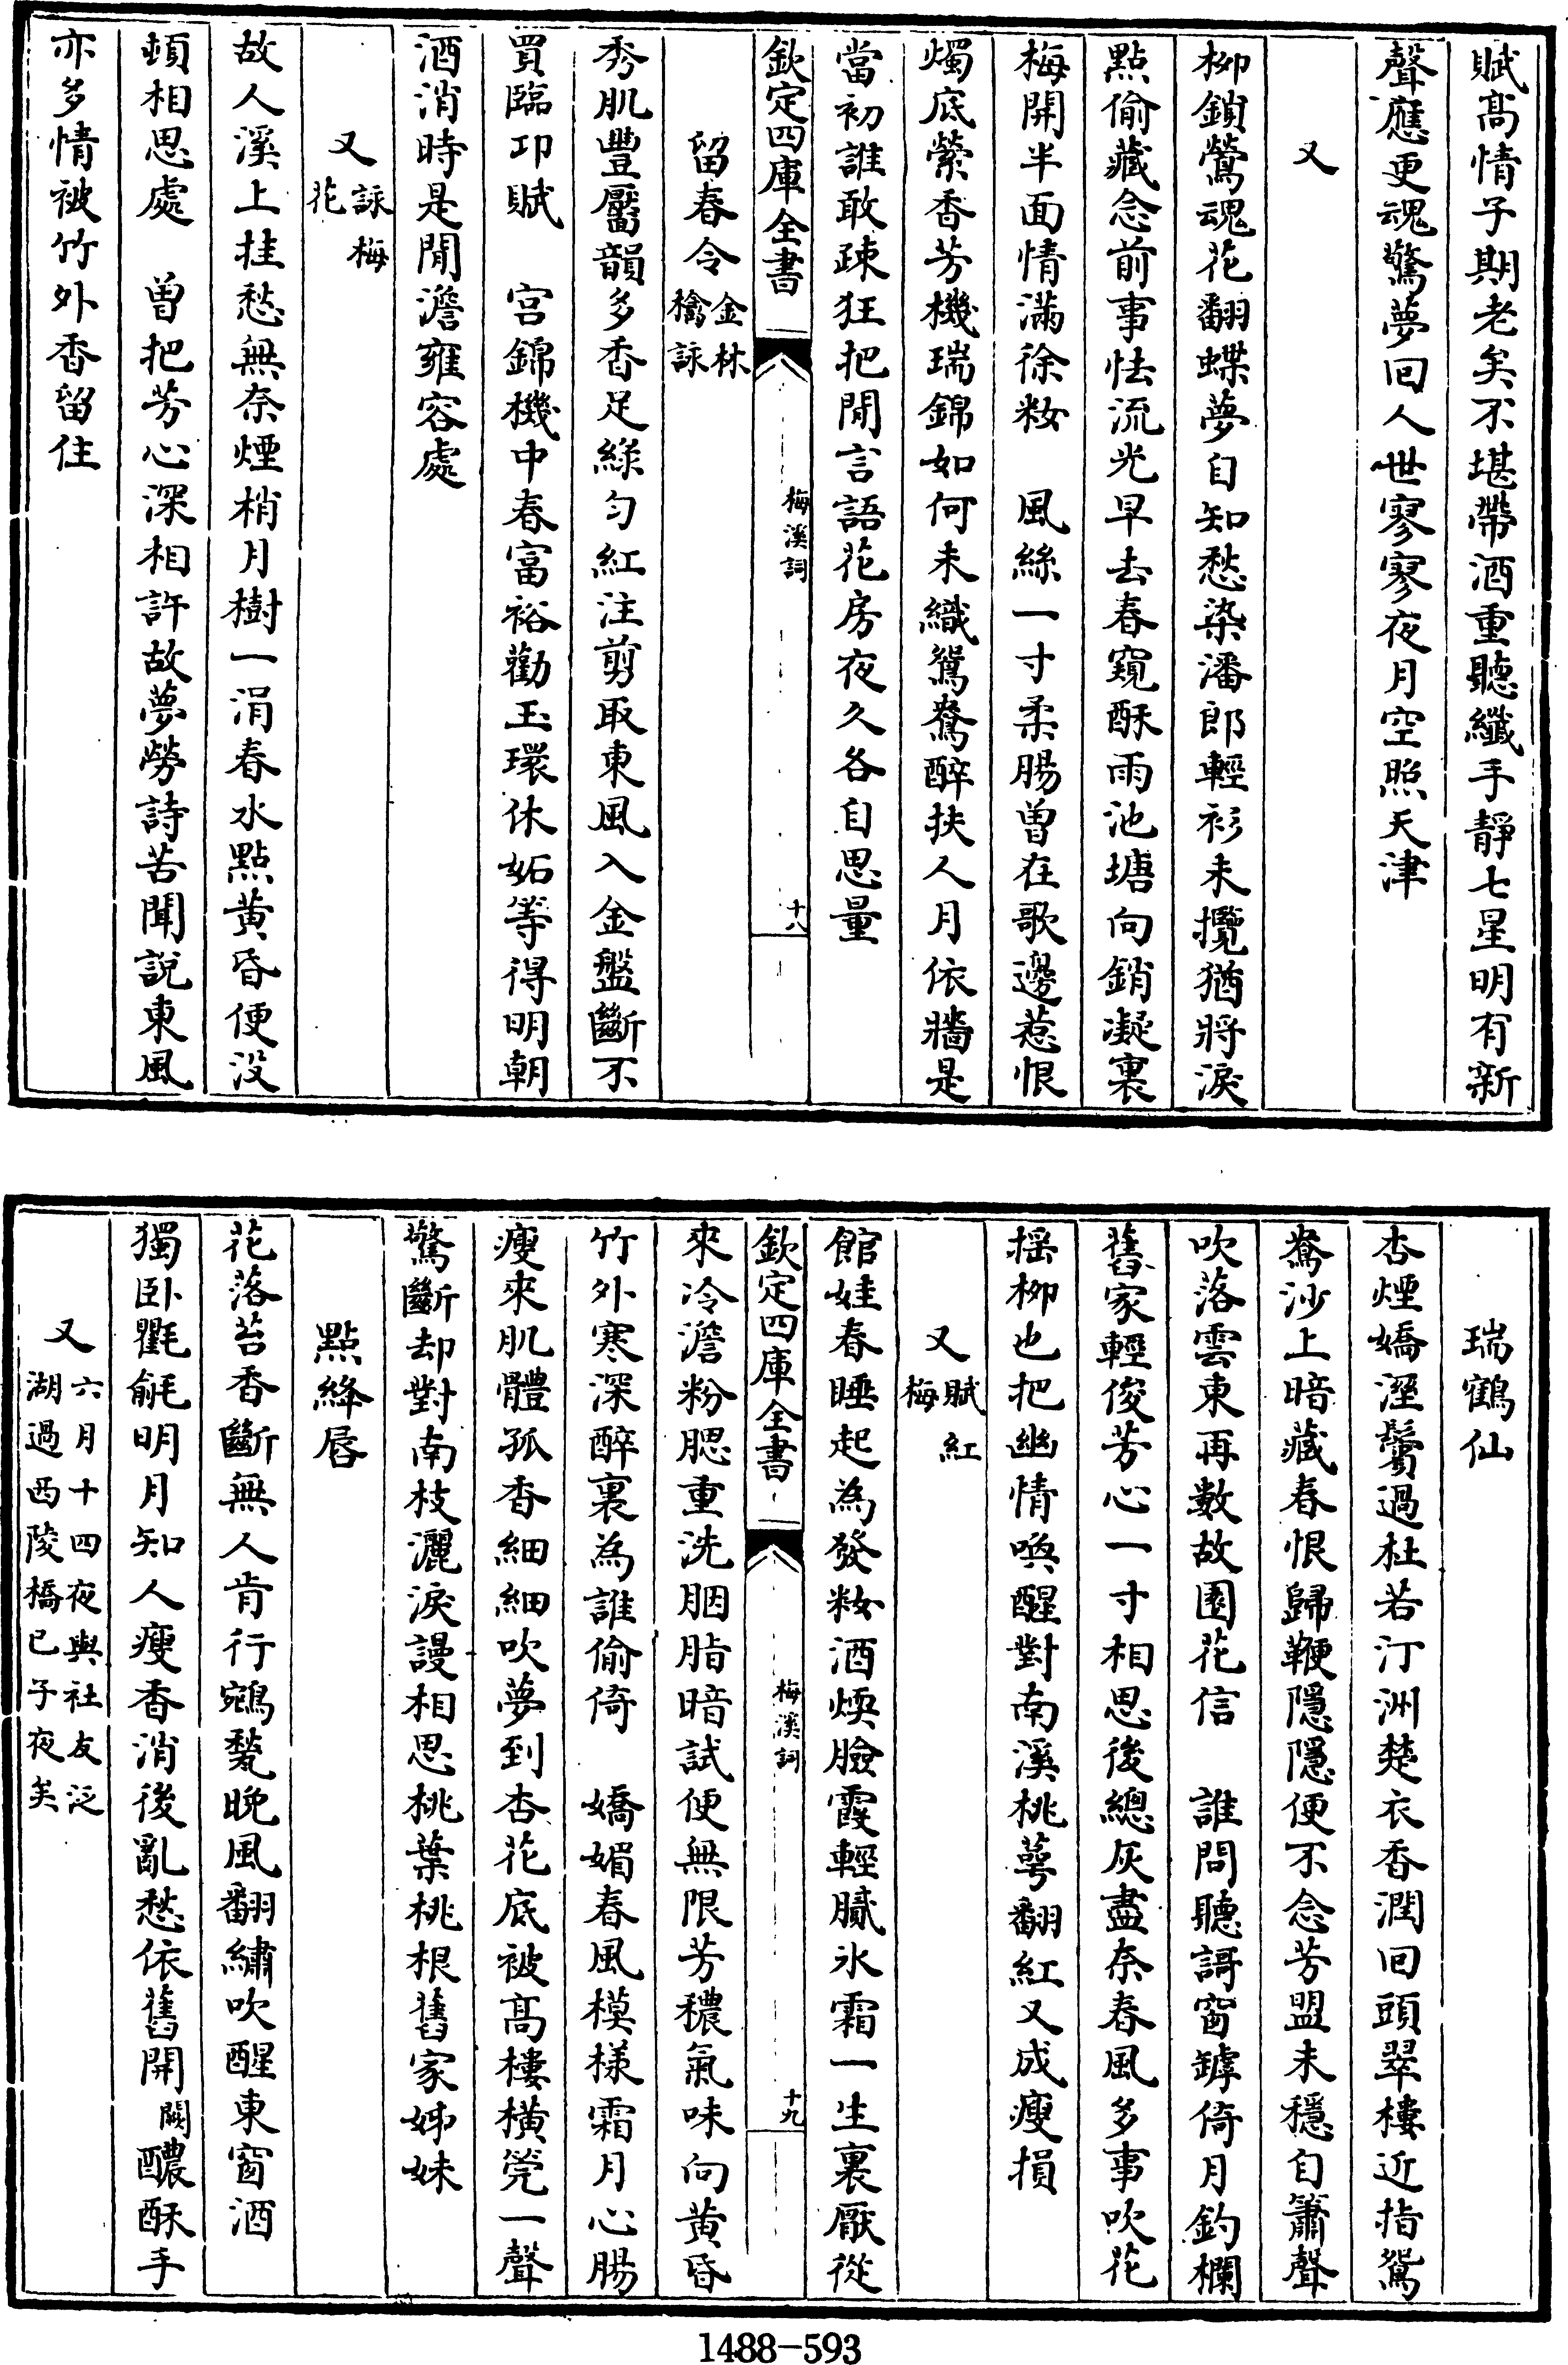 賦高情子期老矣不堪帶酒重聽纖手靜七星明有新
聲應更魂驚夢回人世寥寥夜月空照天津
又
柳鎖鶯魂花翻蝶夢自知愁染潘郎輕衫未攬猶將淚
點偷藏念前事怯流光早去春窺酥雨池塘向銷凝裏
梅開半面情滿徐妝　風絲一寸柔腸曾在歌邊惹恨
燭底縈香芳機瑞錦如何未織鴛鴦醉扶人月依牆是
當初誰敢疎狂把閒言語花房夜久各自思量
欽定四庫全書
梅溪詞
十八
留春令金林
檎詠
秀肌豐靨韻多香足綠勻紅注剪取東風入金盤斷不
買臨邛賦　宮錦機中春富裕勸玉環休妬等得明朝
酒消時是閒澹雍容處
又詠梅
花
故人溪上挂愁無奈煙梢月樹一涓春水點黃昏便沒
頓相思處　曾把芳心深相許故夢勞詩苦聞說東風
亦多情被竹外香留住
瑞鶴仙
杏煙嬌溼鬢過杜若汀洲楚衣香潤回頭翠樓近指鴛
鴦沙上暗藏春恨歸鞭隱隱便不念芳盟未穩自簫聲
吹落雲東再數故園花信　誰問聽謌窗罅倚月釣欄
舊家輕俊芳心一寸相思後總灰盡奈春風多事吹花
搖柳也把幽情喚醒對南溪桃萼翻紅又成瘦損
又賦紅
梅
館娃春睡起為發妝酒煖臉霞輕膩氷霜一生裏厭從
來冷澹粉腮重洗胭脂暗試便無限芳穠氣味向黃昏
欽定四庫全書
梅溪詞
十九
竹外寒深醉裏為誰偷倚　嬌媚春風模樣霜月心腸
瘦來肌體孤香細細吹夢到杏花底被高樓橫筦一聲
驚斷却對南枝灑淚謾相思桃葉桃根舊家姊妹
點絳唇
花落苔香斷無人肯行鴛甃晚風翻繡吹醒東窗酒
獨卧氍毹明月知人瘦香消後亂愁依舊開闕醲酥手
又六月十四夜與社友泛
湖過西陵橋已子夜矣
1488-593